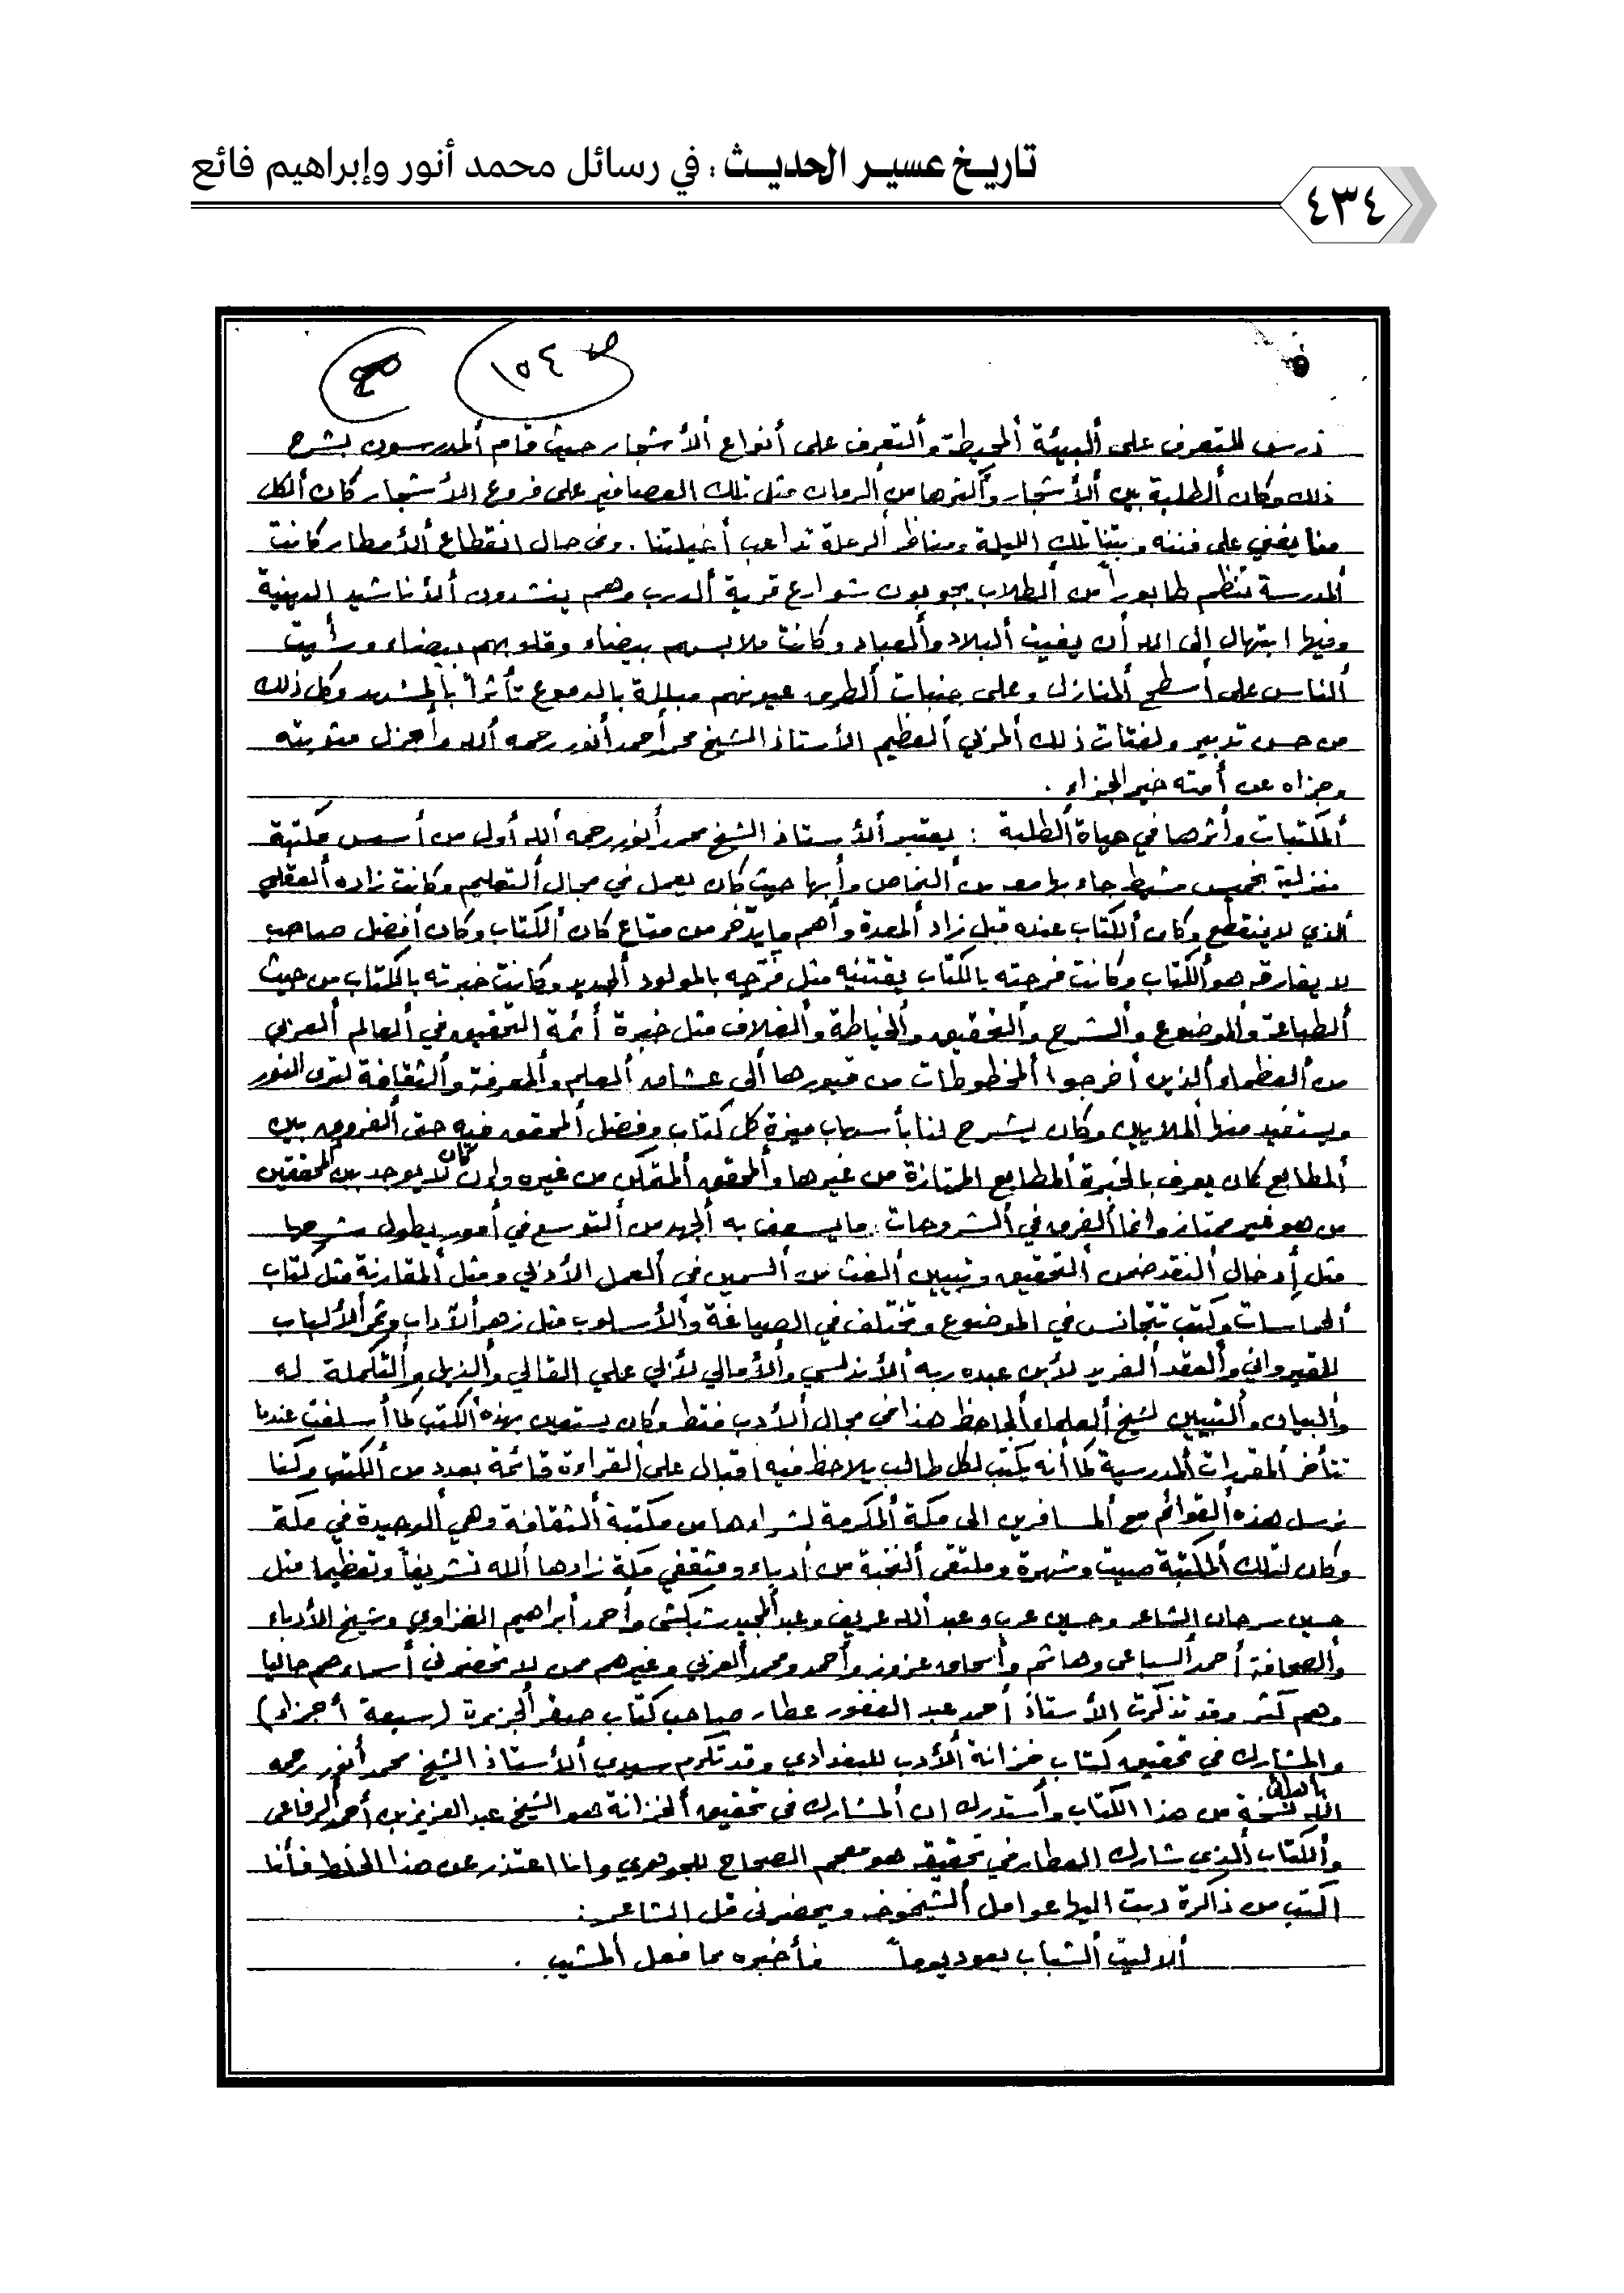 تاريخ عسير الحديث : في رسائل محمد أنور وإبراهيم فائع
٤٣٤
ص ١٥٤
درس للتعرف على ألبيئة ألمحيطة وألتعرف على أنواع ألأشجار حيث قام ألمدرسون بشرح
ذلك وكان ألطلبة بين ألأشجار وأكثرها من ألرمان مثل تلك العصافير على فروع الأشجار كان ألكل
منا يغني على فننه وبتنا تلك الليلة ومناظر ألرحلة تداعب أخيلتنا . وفي حال انقطاع ألأمطار كانت
ألمدرسة تنظم طابوراً من ألطلاب يجوبون شوارع قرية ألدرب وهم ينشدون ألأناشيد الدينية
وفيها ابتهال الى الله أن يغيث ألبلاد وألعباد وكانت ملابسهم بيضاء وقلوبهم بيضاء ورأيت
ألناس على أسطح ألمنازل وعلى جنبات ألطرق عيونهم مبللة بالدموع تأثراً بألمشهد وكل ذلك
من حسن تدبير ولفتات ذلك ألمربي ألعظيم الأستاذ الشيخ محمد أحمد أنور رحمه ألله وأجزل مثوبته
وجزاه عن أمته خير الجزاء .
ألمكتبات وأثرها في حياة ألطلبة : يعتبر ألأستاذ الشيخ محمد أنور رحمه ألله أول من أسس مكتبة
منزلية بخميس مشيط جاء بها معه من ألنماص وأبها حيث كان يعمل في مجال ألتعليم وكانت زاده ألعقلي
ألذي لا ينقطع وكان ألكتاب عنده قبل زاد ألمعدة وأهم ما يدخر من متاع كان ألكتاب وكان أفضل صاحب
لا يفارقه هو ألكتاب وكانت فرحته بالكتاب يقتنيه مثل فرحه بالمولود ألجديد وكانت خبرته بالكتاب من حيث
ألطباعة وألموضوع وألشرح وألتحقيق وألخياطة وألغلاف مثل خبرة أئمة التحقيق في ألعالم ألعربي
من ألعظماء ألذين أخرجوا ألمخطوطات من قبورها ألى عشاق ألعلم وألمعرفة وألثقافة لترى النور
ويستفيد منها ألملايين وكان يشرح لنا بأسهاب ميزة كل كتاب وفضل ألمحقق فيه حتى ألفروق بين
ألمطابع كان يعرف بالخبرة ألمطابع الممتازة من غيرها وألمحقق ألمتمكن من غيره وإن كان لا يوجد بين المحققين
من هو غير ممتاز وانما ألفرق في ألشروحات . ما يسعف به ألجهد من ألتوسع في أمور يطول شرحها
مثل إدخال ألنقد ضمن ألتحقيق وتبيين ألغث من ألسمين في ألعمل الأدبي ومثل ألمقارنة مثل كتاب
ألحماسات وكتب تتجانس في الموضوع وتختلف في الصياغة وألأسلوب مثل زهر ألآداب وثمر ألألباب
للقيرواني وألعقد ألفريد لأبن عبد ربه ألأندلسي وألأمالي لأبي علي القالي وألذيل وألتكملة له
وألبيان وألتبيين لشيخ ألعلماء ألجاحظ هذا في مجال ألأدب فقط وكان يستعين بهذه ألكتب كما أسلفت عندما
تتأخر ألمقررات ألمدرسية كما أنه يكتب لكل طالب يلاحظ فيه اقبال على ألقراءة قائمة بعدد من ألكتب وكنا
نرسل هذه ألقوائم مع ألمسافرين الى مكة ألمكرمة لشراءها من مكتبة ألثقافة وهي ألوحيدة في مكة
وكان لتلك ألمكتبة صيت وشهرة وملتقى ألنخبة من أدباء ومثقفي مكة زادها ألله تشريفاً وتعظيما مثل
حسين سرحان الشاعر وحسين عرب وعبد ألله عريف وعبد ألمجيد شبكشي وأحمد أبراهيم الغزاوي وشيخ الأدباء
وألصحافة أحمد ألسباعي وهاشم وأسحاق عزوز وأحمد ومحمد ألعربي وغيرهم ممن لا تحضرني أسماءهم حاليا
وهم كثر وقد تذكرت الأستاذ أحمد عبد الغفور عطار صاحب كتاب صقر ألجزيرة (سبعة أجزاء)
والمشارك في تحقيق كتاب خزانة ألأدب للبغدادي وقد تكرم سيدي ألأستاذ الشيخ محمد أنور رحمه
الله بأهدائي نسخة من هذا الكتاب وأستدرك ان ألمشارك في تحقيق ألخزانة هو الشيخ عبد العزيز بن أحمد ألرفاعي
وألكتاب ألذي شارك العطار في تحقيقه هو معجم الصحاح للجوهري وانا اعتذر عن هذا الخلط فأنا
اكتب من ذاكرة دبت اليها عوامل ألشيخوخه ويحضرني قل الشاعر :
ألا ليت ألشباب يعود يوماً فأخبره بما فعل ألمشيب .